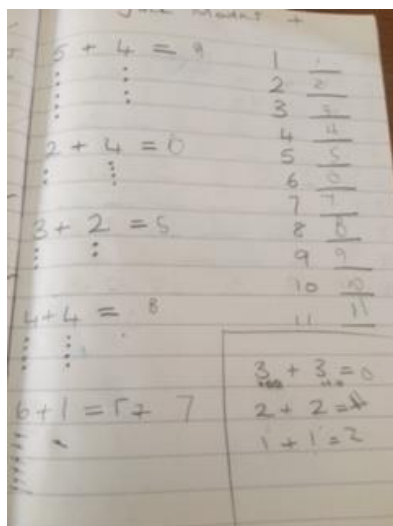 5 + 4 = 9
2 + 4 = 6
3 + 2 = 5
4+4 = 8
6+1 = 7
1 1
2 2
3 3
4 4
5 5
6 6
7 7
8 8
9 9
10 10
11 11
3 + 3 = 6
2 + 2 = 4
1 + 1 = 2